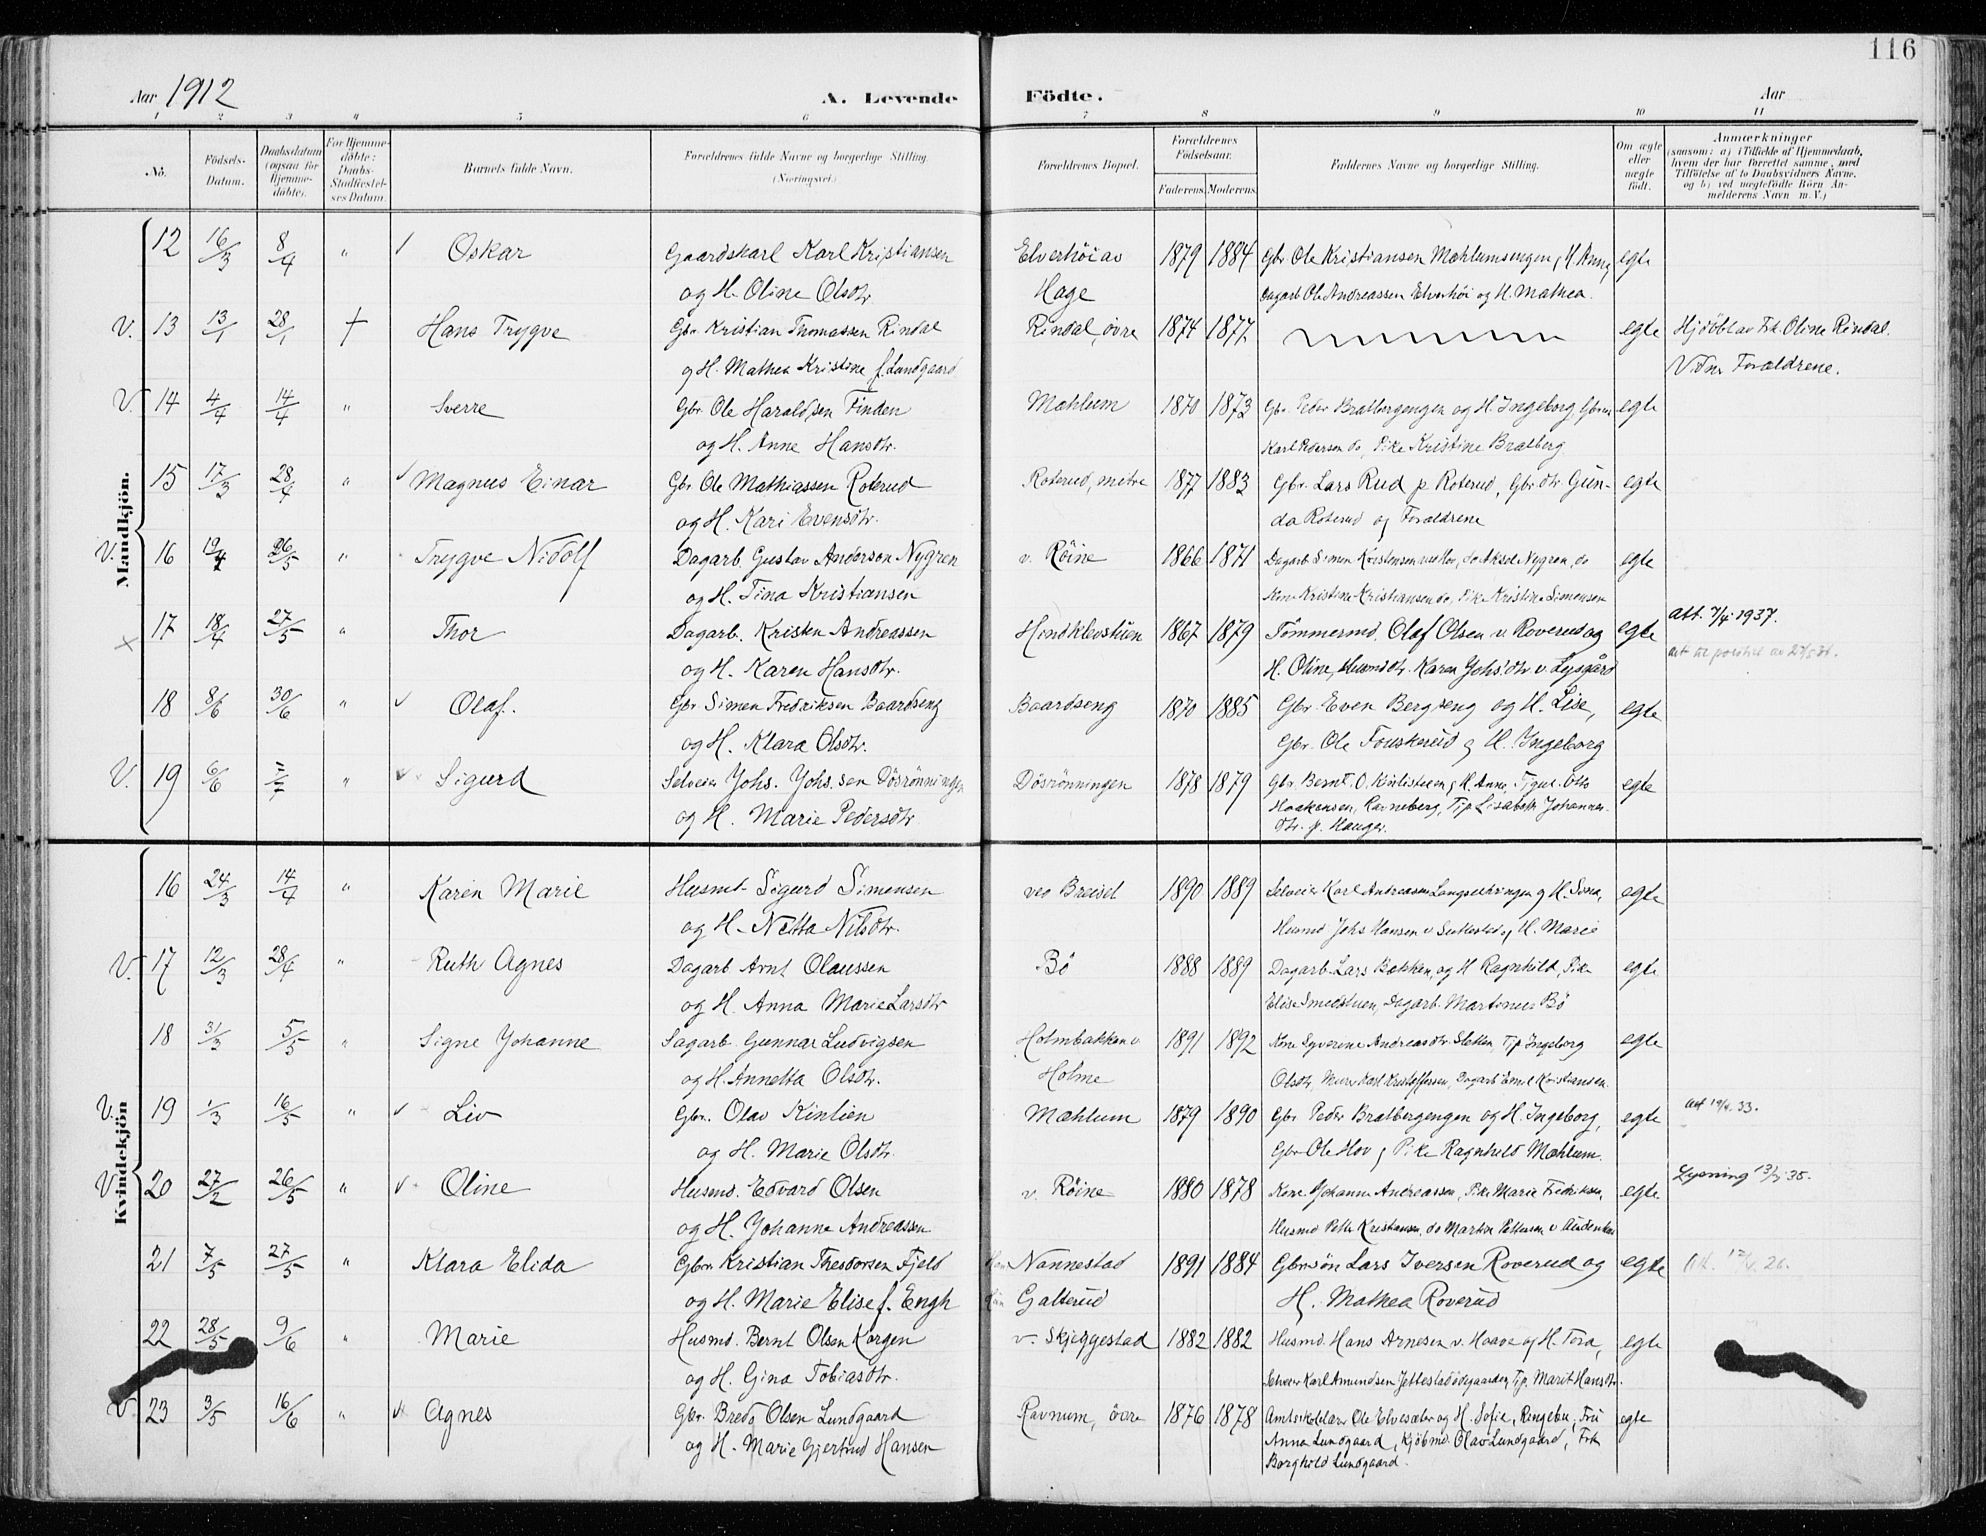 116
Aar 1912 A. Levende Födte. Aar
1 2 3 4 5 6 7 8 9 10 11
No. Födsels-Datum. Daabsdatum (ogsaa for Hjemme-döbte). For Hjemme-döbte: Daabs-Stadfæstel-ses Datum. Barnets fulde Navn. Forældrenes fulde Navne og borgerlige Stilling. (Næringsvei.) Forældrenes Bopæl. Forældrenes Födselsaar. Faderens. Moderens. Faddernes Navne og borgerlige Stilling. Om ægte eller uægte födt. Anmærkninger
(saasom: a) i Tilfælde af Hjemmedaab, hvem der har forrettet samme, med Tilföielse af to Daabsvidners Navne. og b) ved uægtefödte Börn An-melderens Navn m. V.)
Mandkjön.
12 16/3 8/4 " Oskar Gaardskarl Karl Kristiansen Elverhöi av 1879 1884 Gbr Ole Kristiansen Mæhlumsengen, H. Anne, egte
og H. Oline Olsdtr Hage Dagarb Ole Andreassen Elverhöi og H. Mathea.
V. 13 13/1 28/1 † Hans Trygve Gbr Kristian Thomassen Rindal Rindal, övre 1874 1877 egte Hjdöbt av Frk. Oline Rindal.
og H. Mathea Kristine f. Lundgaard Vidn. Forældrene.
V. 14 4/4 14/4 " Sverre Gbr. Ole Haraldsen Finden Mæhlum 1870 1873 Gbr. Peder Bratbergengen og H. Ingeborg, egte
og H. Anne Hansdtr. Karl Pedersen do, Pike Kristine Bratberg
15 17/3 28/4 " Magnus Einar Gbr. Ole Mathiassen Roterud Roterud, mitre 1877 1883 Gbr. Lars Rud p. Roterud, Gbr dtr Gun- egte
og H. Kari Evensdtr. da Roterud og Forældrene
V. 16 19/4 26/5 " Trygve Nidolf Dagarb. Gustav Anderson Nygren v. Röine 1866 1871 Dagarb Simen Kristensen do Aksel Nygren, do egte
og H. Tina Kristiansen Kone Kristine Kristiansen do, Pike Kristine Simensen
17 18/4 27/5 " Thor Dagarb. Kristen Andreassen Hindklevstuen 1867 1879 Tömmermd. Olaf Olsen v. Roverud og egte Att. 7/4 1937.
og H. Karen Hansdtr. H. Oline, Husmdtr. Karen Johs'dtr v. Lysgård
18 8/6 30/6 " Olaf. Gbr Simen Fredriksen Baardseng Baardseng 1870 1885 Gbr. Even Bergseng og H. Lise, egte
og H. Klara Olsdtr. Gbr. Ole Fouskerud og H. Ingeborg
V. 19 6/6 " Sigurd Selveier Johs. Johs.sen Dösrönningen Dösrönningen 1878 1879 Gbr. Bernt O. og H. Anne, Tjgut. Otto egte
og H. Marie Pedersdtr Haakensen, Ravneberg, Tjp Lisabeth Johannes-
dtr. p. Hauger.
Kvindekjön
16 24/3 14/4 " Karen Marie Husmd. Sigurd Simensen ved Breiset 1890 1889 Selveier Karl Andreassen og H. egte
og H. Netta Nilsdtr. Husmd Johs Hansen v og H. Marie
V. 17 12/3 28/4 " Ruth Agnes Dagarb Arnt Olaussen Bö 1888 1889 Dagarb. Lars Bakken, og H Ragnhild, Pike egte
og H. Anna Marie Larsdtr Elise Smedstuen, Dagarb. Martinus Bö
18 31/3 5/5 " Signe Johanne Sagarb. Gunnar Ludvigsen Holmbakken v. 1891 1892 Kone Syverine Andreasdtr. Sletten, Tjp Ingeborg egte
og H. Annetta Olsdtr. Holme Olsdtr, Murer Karl Kristoffersen, Dagarb Emil Kristiansen.
V. 19 1/3 16/5 " Liv Gbr. Olav Kinlien Mæhlum 1879 1890 Gbr Peder Bratbergengen og H. Ingeborg, egte Att 19/4. 33.
og H. Marie Olsdtr. Gbr Ole Hov og Pike Ragnhild Mæhlum.
V. 20 27/2 26/5 " Oline Husmd. Edvard Olsen v. Röine 1880 1878 Kone Johanne Andreassen, Pike Marie Fredriksen, egte Lysning 13/5 35.
og H. Johanne Andreassen Husmd Peter Kristiansen, do Martin Pettersen v.
21 7/5 27/5 " Klara Elida Gbr. Kristian Theodorsen Fjeld Nannestad 1891 1884 Gbrsön Lars Iversen Roverud og egte
og H. Marie Elise f. Engh Galterud H. Mathea Roverud
22 28/5 9/6 " Marie Husmd. Bernt Olsen Korgen v. Skjeggestad 1882 1882 Husmd. Hans Arnesen v. Haave og H. Tora, egte
og H. Gina Tobiasdtr. Selveier Karl Amundsen Jettestadödegaarden, Tjp. Marit Hansdtr.
V. 23 3/5 16/6 " Agnes Gbr. Bredo Olsen Lundgaard Ravnum, övre 1876 1878 Amtskolelærer Ole Elvesæter og H. Sofie, Ringebu, Fru egte
og H. Marie Gjertrud Hansen Anna Lundgaard, Kjöbmd. Olav Lundgaard, Frk
Borghild Lundgaard.